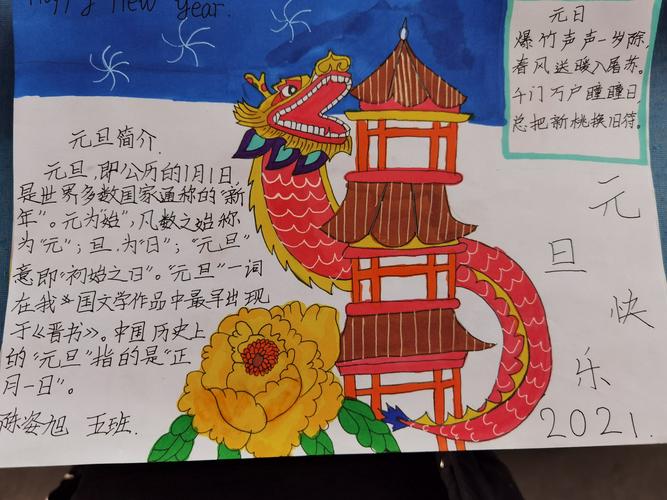 Happy New Year.
元日
爆竹声声一岁除,
春风送暖入屠苏。
千门万户瞳瞳日,
总把新桃换旧符。
元旦简介
元旦,即公历的1月1日,
是世界多数国家通称的“新
年”。元为“始”,凡数之始称
为“元”;旦.为“日”;“元旦”
意即“初始之日”。“元旦”一词
在我国文学作品中最早出现
于《晋书》。中国历史上
的“元旦”指的是“正
月一日”。
陈姿旭 五班.
元
旦
快
乐
2021.